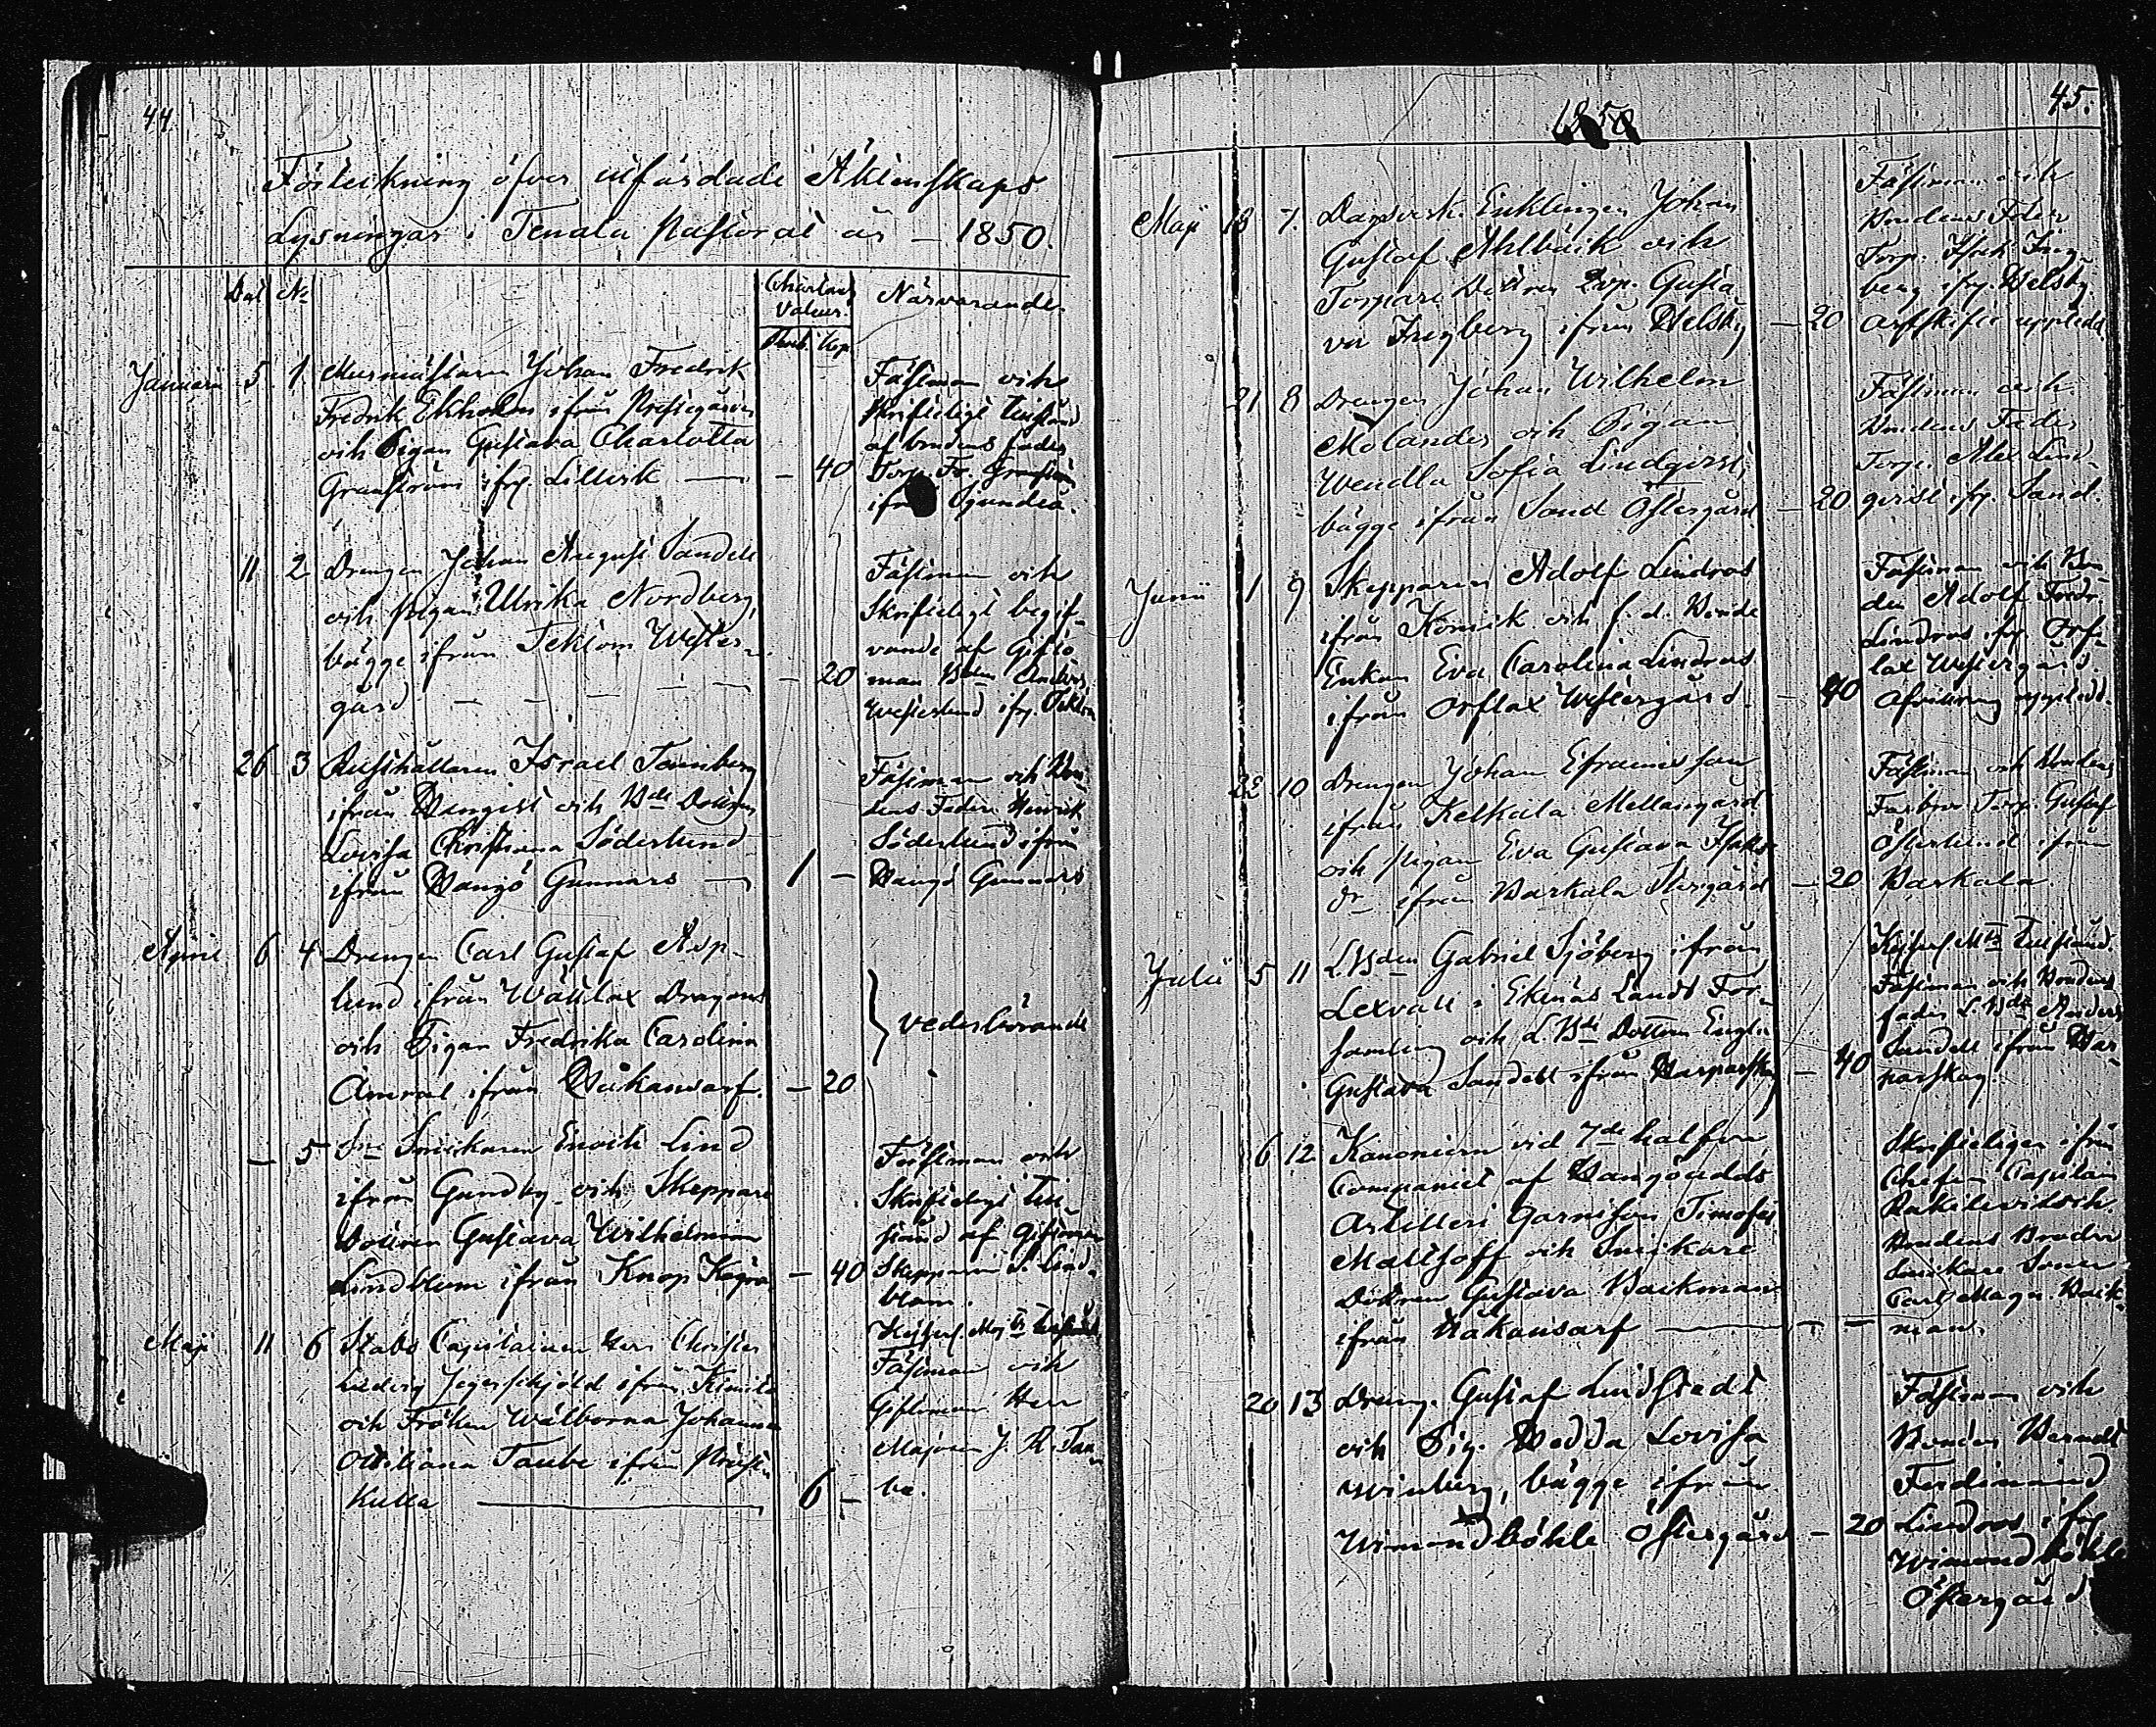 44
Förteckning öfver utfärdade Äktenskaps
Lysningar i Tenala Pastorat år – 1850.
Dat No Chartæ Valeur. Närvarande
Rub. Kop.
Januari 5 1 Murmästaren Johan Fredrik
Fredrik Ekholm ifrån Prestegården
och Pigan Gustava Charlotta
Granström ifr. Lillerik — – 40
Fästman och
skrifteligt tillstånd
af brudens fader
Torp. Fr. Granström
ifr.
11 2 Drengen Johan August Sandell
och pigan Ulrika Nordberg,
bägge ifrån Teklom Wester-
gård – – – – – 20
Fästman och
Skrifteligt begif-
vande af Gifto
man Bdn Anders
Westerlund ifr. Teklom
26 3 Rusthållaren Israel Tennberg
ifrån och Bde Dottren
Lovisa Christina Söderlund
ifrån Hangö Gunnars — 1 –
Fästman och Bru-
dens Fader Henrik
Söderlund ifrån
Hangö Gunnars
April 6 4 Drengen Carl Gustaf Asp-
lund ifrån Wättlax Dragons
och Pigan Fredrika Carolina
Amral ifrån – 20
vederbörande
– 5 Snickaren Enoch Lind
ifrån Gundby och Skeppare
Dottren Gustava Wilhelmina
Lindblom ifrån Knop – 40
Fästman och
Skrifteligt till-
stånd af Giftoman
Skepparen Lind-
blom.
Maji 11 6 Stabs Capitainen Herr Christer
Ludvig Jägerskjöld ifrån Kimito
och Fröken Wälborna Johanna
Ottiliana Taube ifrån Prest-
kulla — 6 –
Kejserl. Maj:ts tillstånd
Fästman och
Giftoman Herr
Majoren J. R. Tau-
be.
45.
1850
Maji 18 7. Enklingen Johan
Gustaf Ahlbäck och
Torpare Dottren Gusta
va Ingberg ifrån Helsby – 20
Fästman och
Brudens Fader
Torp. Isak Ing-
berg ifr. Helsby.
Arfskifte uppledd.
21 8 Drengen Johan Wilhelm
Molander och Pigan
Wendla Sofia Lindqvist,
bägge ifrån Sand Östergård – 20
Fästman och
Brudens Fader
Torp. Alex. Lind-
qvist ifr. Sand.
Junii 1 9 Skepparen Adolf Lindros
ifrån och f. d. Bonde
Enkan Eva Carolina Lindros
ifrån Orslax Westergård. – 40
Fästman och Bon
den Adolf Fredr.
Lindros ifr. Ors-
lax Westergård.
Afvittring uppledd.
22 10 Drengen Johan Efraimsson
ifrån Kelkala Mellangård
och pigan Eva Gustava Isaks
dr ifrån Harkala Storgård – 20
Fästman och Brudens
Farbror Torp. Gustaf
Österlund ifrån
Harkala.
Julii 5 11 L.Bden Gabriel Sjöberg ifrån
Lexvall i Ekenäs Landt För-
samling och L.Bde Dottren Engla
Gustava Sandell ifrån Harparskog – 40
Kejserl. M:ts tillstånd.
Fästman och Brudens
fader L.Bdn Anders
Sandell ifrån Har-
parskog.
6 12. Kanonieren vid 7de halfva
Companiet af Hangöudds
Artilleri Garnison Timofei
Maltsoff och Snickare
Dottren Gustava Backman
ifrån — – –
Skrifteligen ifrån
Chefen Capitain
Brudens Broder
Snickare Sonen
Carl Magn. Back-
man.
20 13 Dreng. Gustaf Lindstedt
och Pig. Hedda Lovisa
Winberg, bägge ifrån
Wimondböhle Östergård – 20
Fästman och
Bonden Berndt
Ferdinand
Lindroos ifr.
Wimondböhle
Östergård